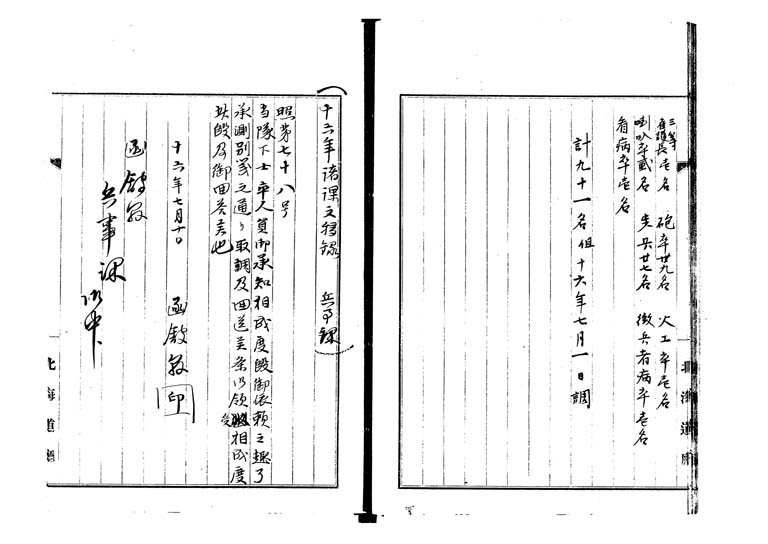 三等
看護長壱名 砲卒廿九名 火工卒壱名
喇叭卒貳名 生兵廿七名 徴兵看病卒壱名
看病卒壱名
計九十一名 但十六年七月一日調
北海道庁
十六年諸課文移録 兵事課
照第七十八号
当隊下士卒人員御承知相成度段御依頼之趣了
承別冊之通り取調及回送候条御領受相成度
此段及御回答候也
十六年七月十日
函館砲隊 印
函館県
兵事課御中
北海道庁